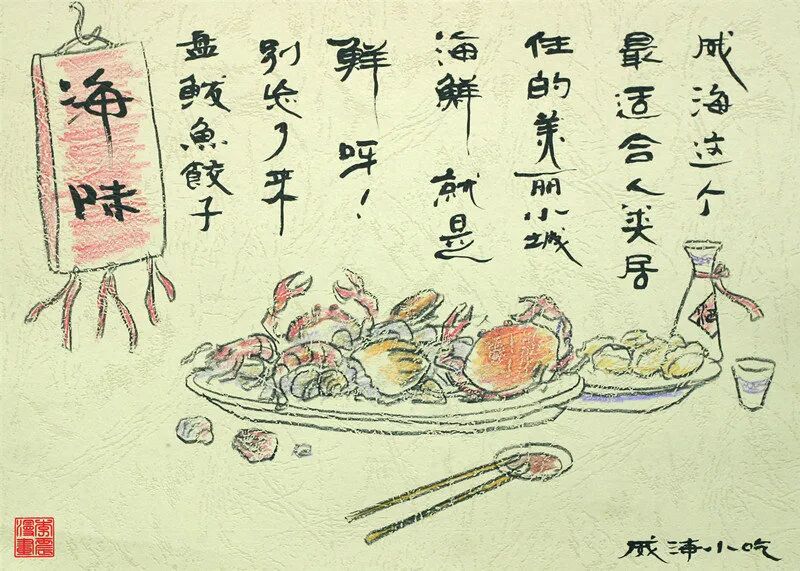 威海这个
最适合人类居
住的美丽小城
海鮮就是
鮮呀！
别忘了来
盘鮁魚餃子
海味
酒
威海小吃
漫畫